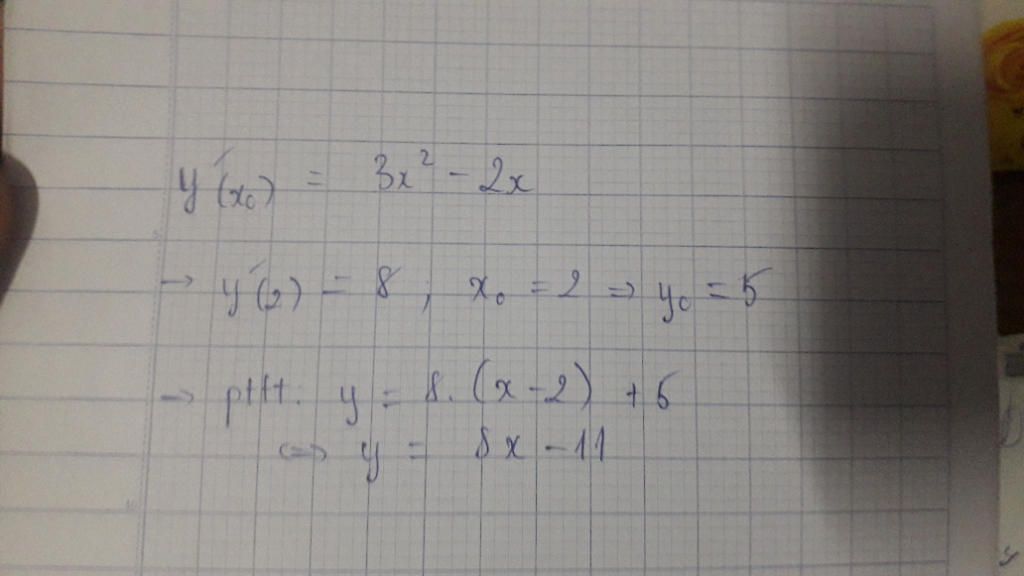 y'(x₀) = 3x² - 2x
→ y'(2) = 8 ; x₀ = 2 ⇒ y₀ = 5
→ pttt: y = 8.(x-2) + 5
⇔ y = 8x - 11